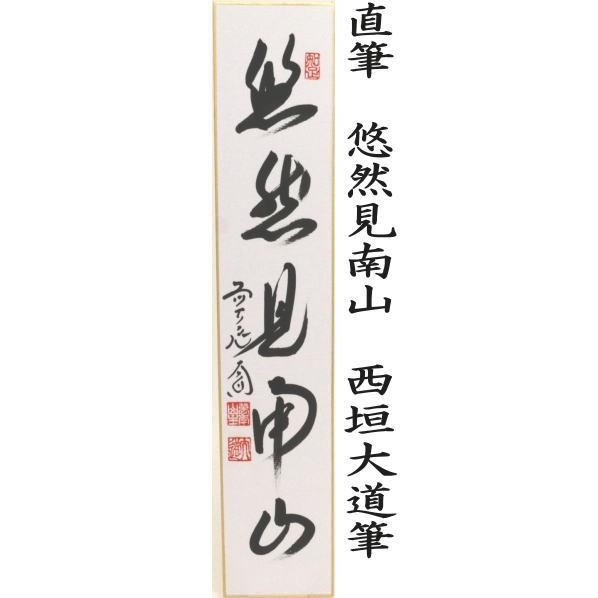 直筆 悠然見南山 西垣大道筆
悠然見南山